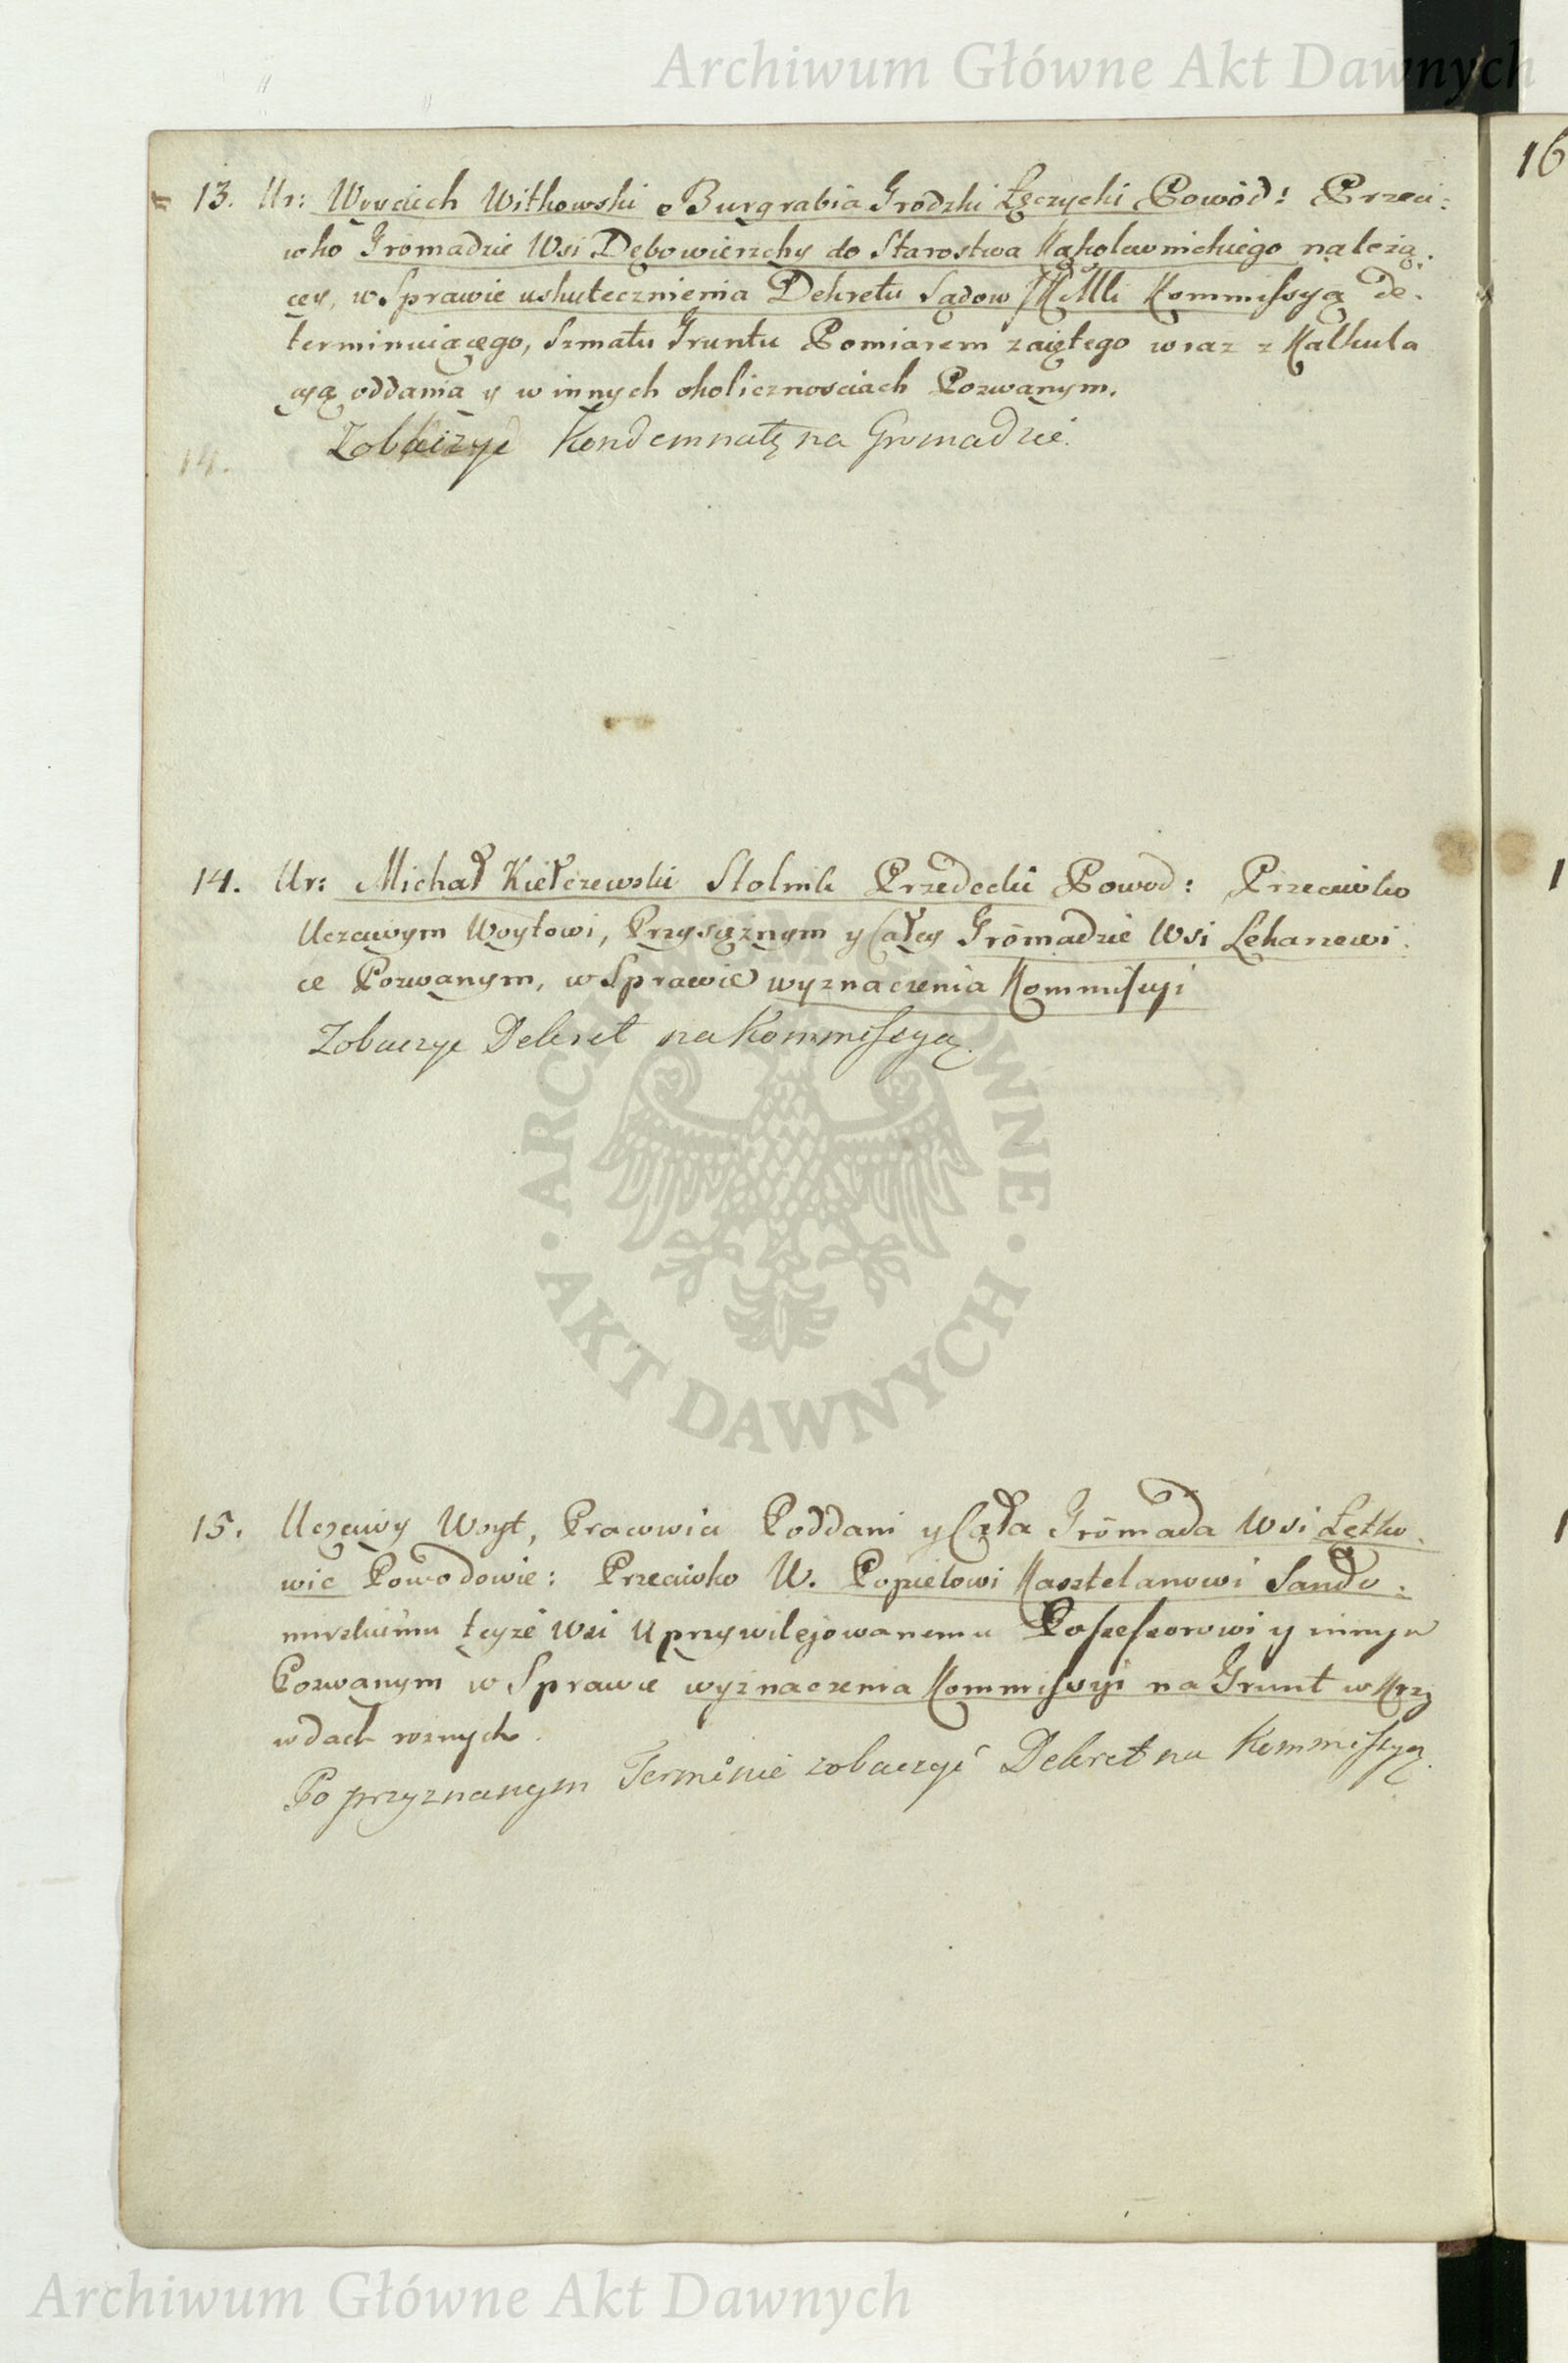 Archiwum Główne Akt Dawnych
16
13. Ur: Woyciech Witkowski Burgrabia Grodzki Łęczycki Powód: Przeci:
wko Gromadzie Wsi Dębowierzchy do Starostwa Kąkolewnickiego należą:
cey, w Sprawie uskutecznienia Dekretu Sądow JKMci Kommissyą de:
terminuiącego, Szmatu Gruntu Pomiarem zaiętego wraz z Kalkula
cyą oddania y w innych okolicznosciach Pozwanym.
14. Zobaczyc Kondemnatę na Gromadzie.
14. Ur: Michał Kiełczewski Stolnik Przedecki Powod: Przeciwko
Uczciwym Woytowi, Przysięznym y Całey Gromadzie Wsi Lekarzewi:
ce Pozwanym, w Sprawie wyznaczenia Kommissyi
Zobaczyc Dekret na Kommissyą.
ARCHIWUM GŁÓWNE · AKT DAWNYCH ·
15. Uczciwy Woyt, Pracowici Poddani y Cała Gromada Wsi Łętko:
wic Powodowie: Przeciwko W. Popielowi Kasztelanowi Sando:
mirskiemu teyże Wsi Uprzywilejowanemu Possessorowi y innym
Pozwanym w Sprawie wyznaczenia Kommissyi na Grunt w Krzy
wdach roznych.
Po przyznanym Terminie zobaczyć Dekret na Kommissyą.
Archiwum Główne Akt Dawnych